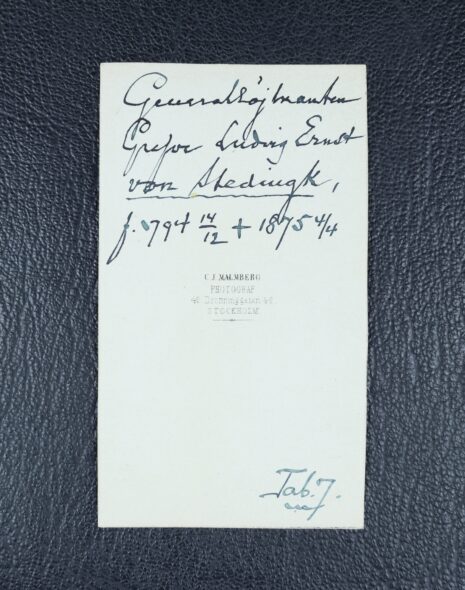 Generallöjtnanten
Grefve Ludvig Ernst
von Stedingk,
f. 1794 14/12 + 1875 4/4
C J MALMBERG
PHOTOGRAF
42 Drottninggatan 42
STOCKHOLM
Tab. 7.